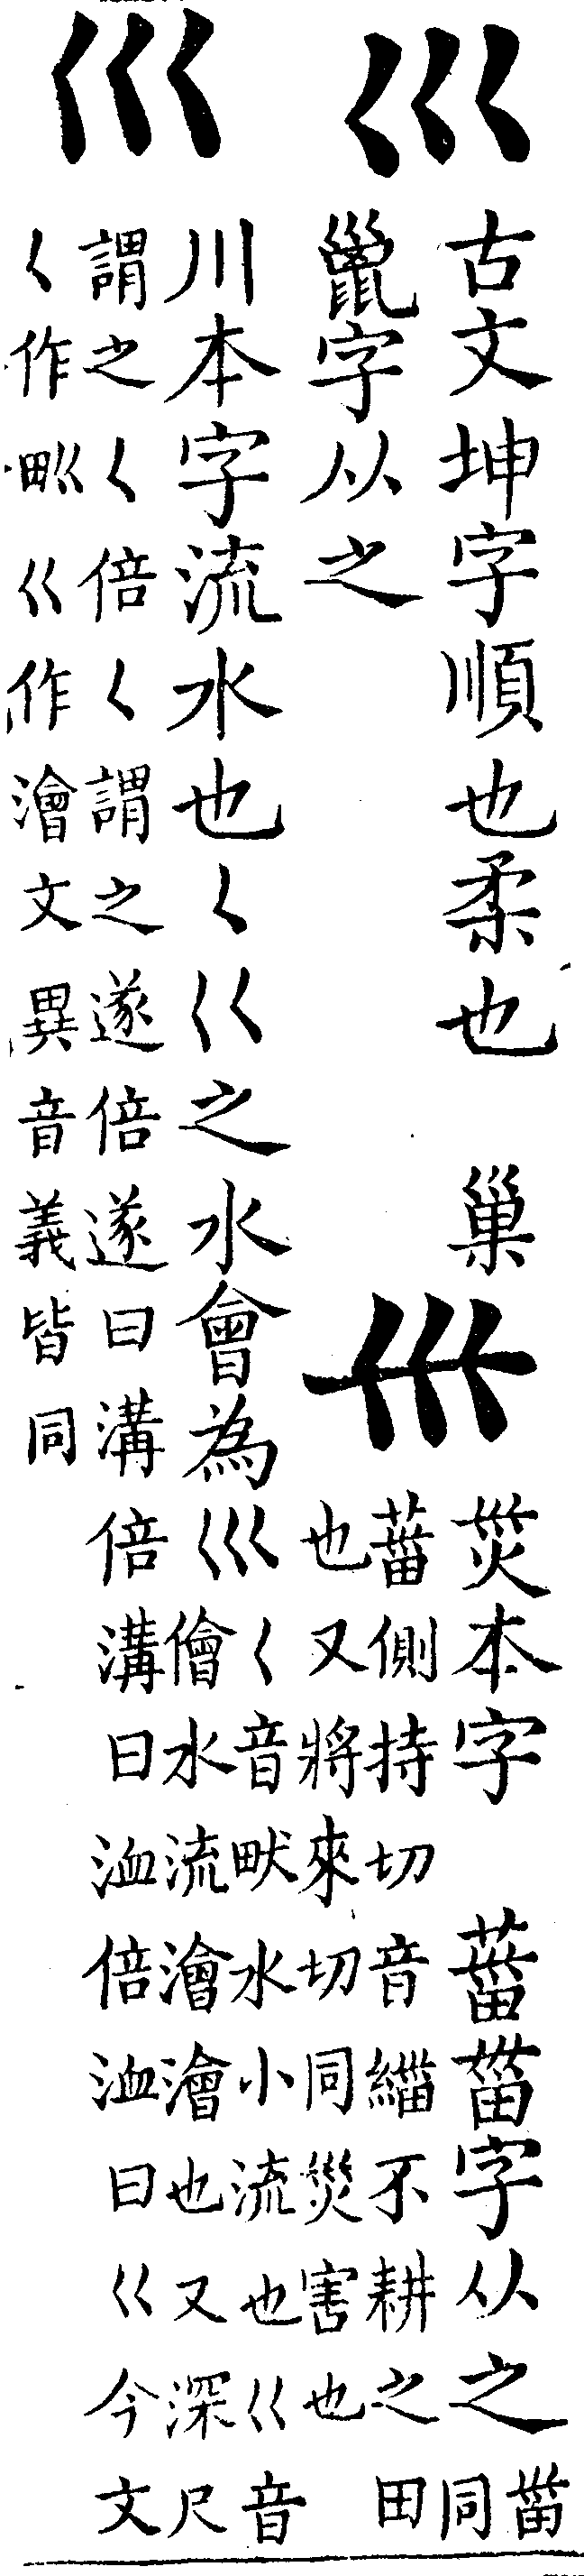 巛
古文坤字順也柔也　巢
巤字从之
𡿧
災本字　葘甾字从之甾同
葘側持切音緇不耕之田
也又將來切同災害也
巛
川本字流水也𡿨巜之水會為巛𡿨音畎水小流也巜音
儈水流澮澮也又深尺
謂之𡿨倍𡿨謂之遂倍遂曰溝倍溝曰洫倍洫曰巜今文
𡿨作甽巜作澮文異音義皆同